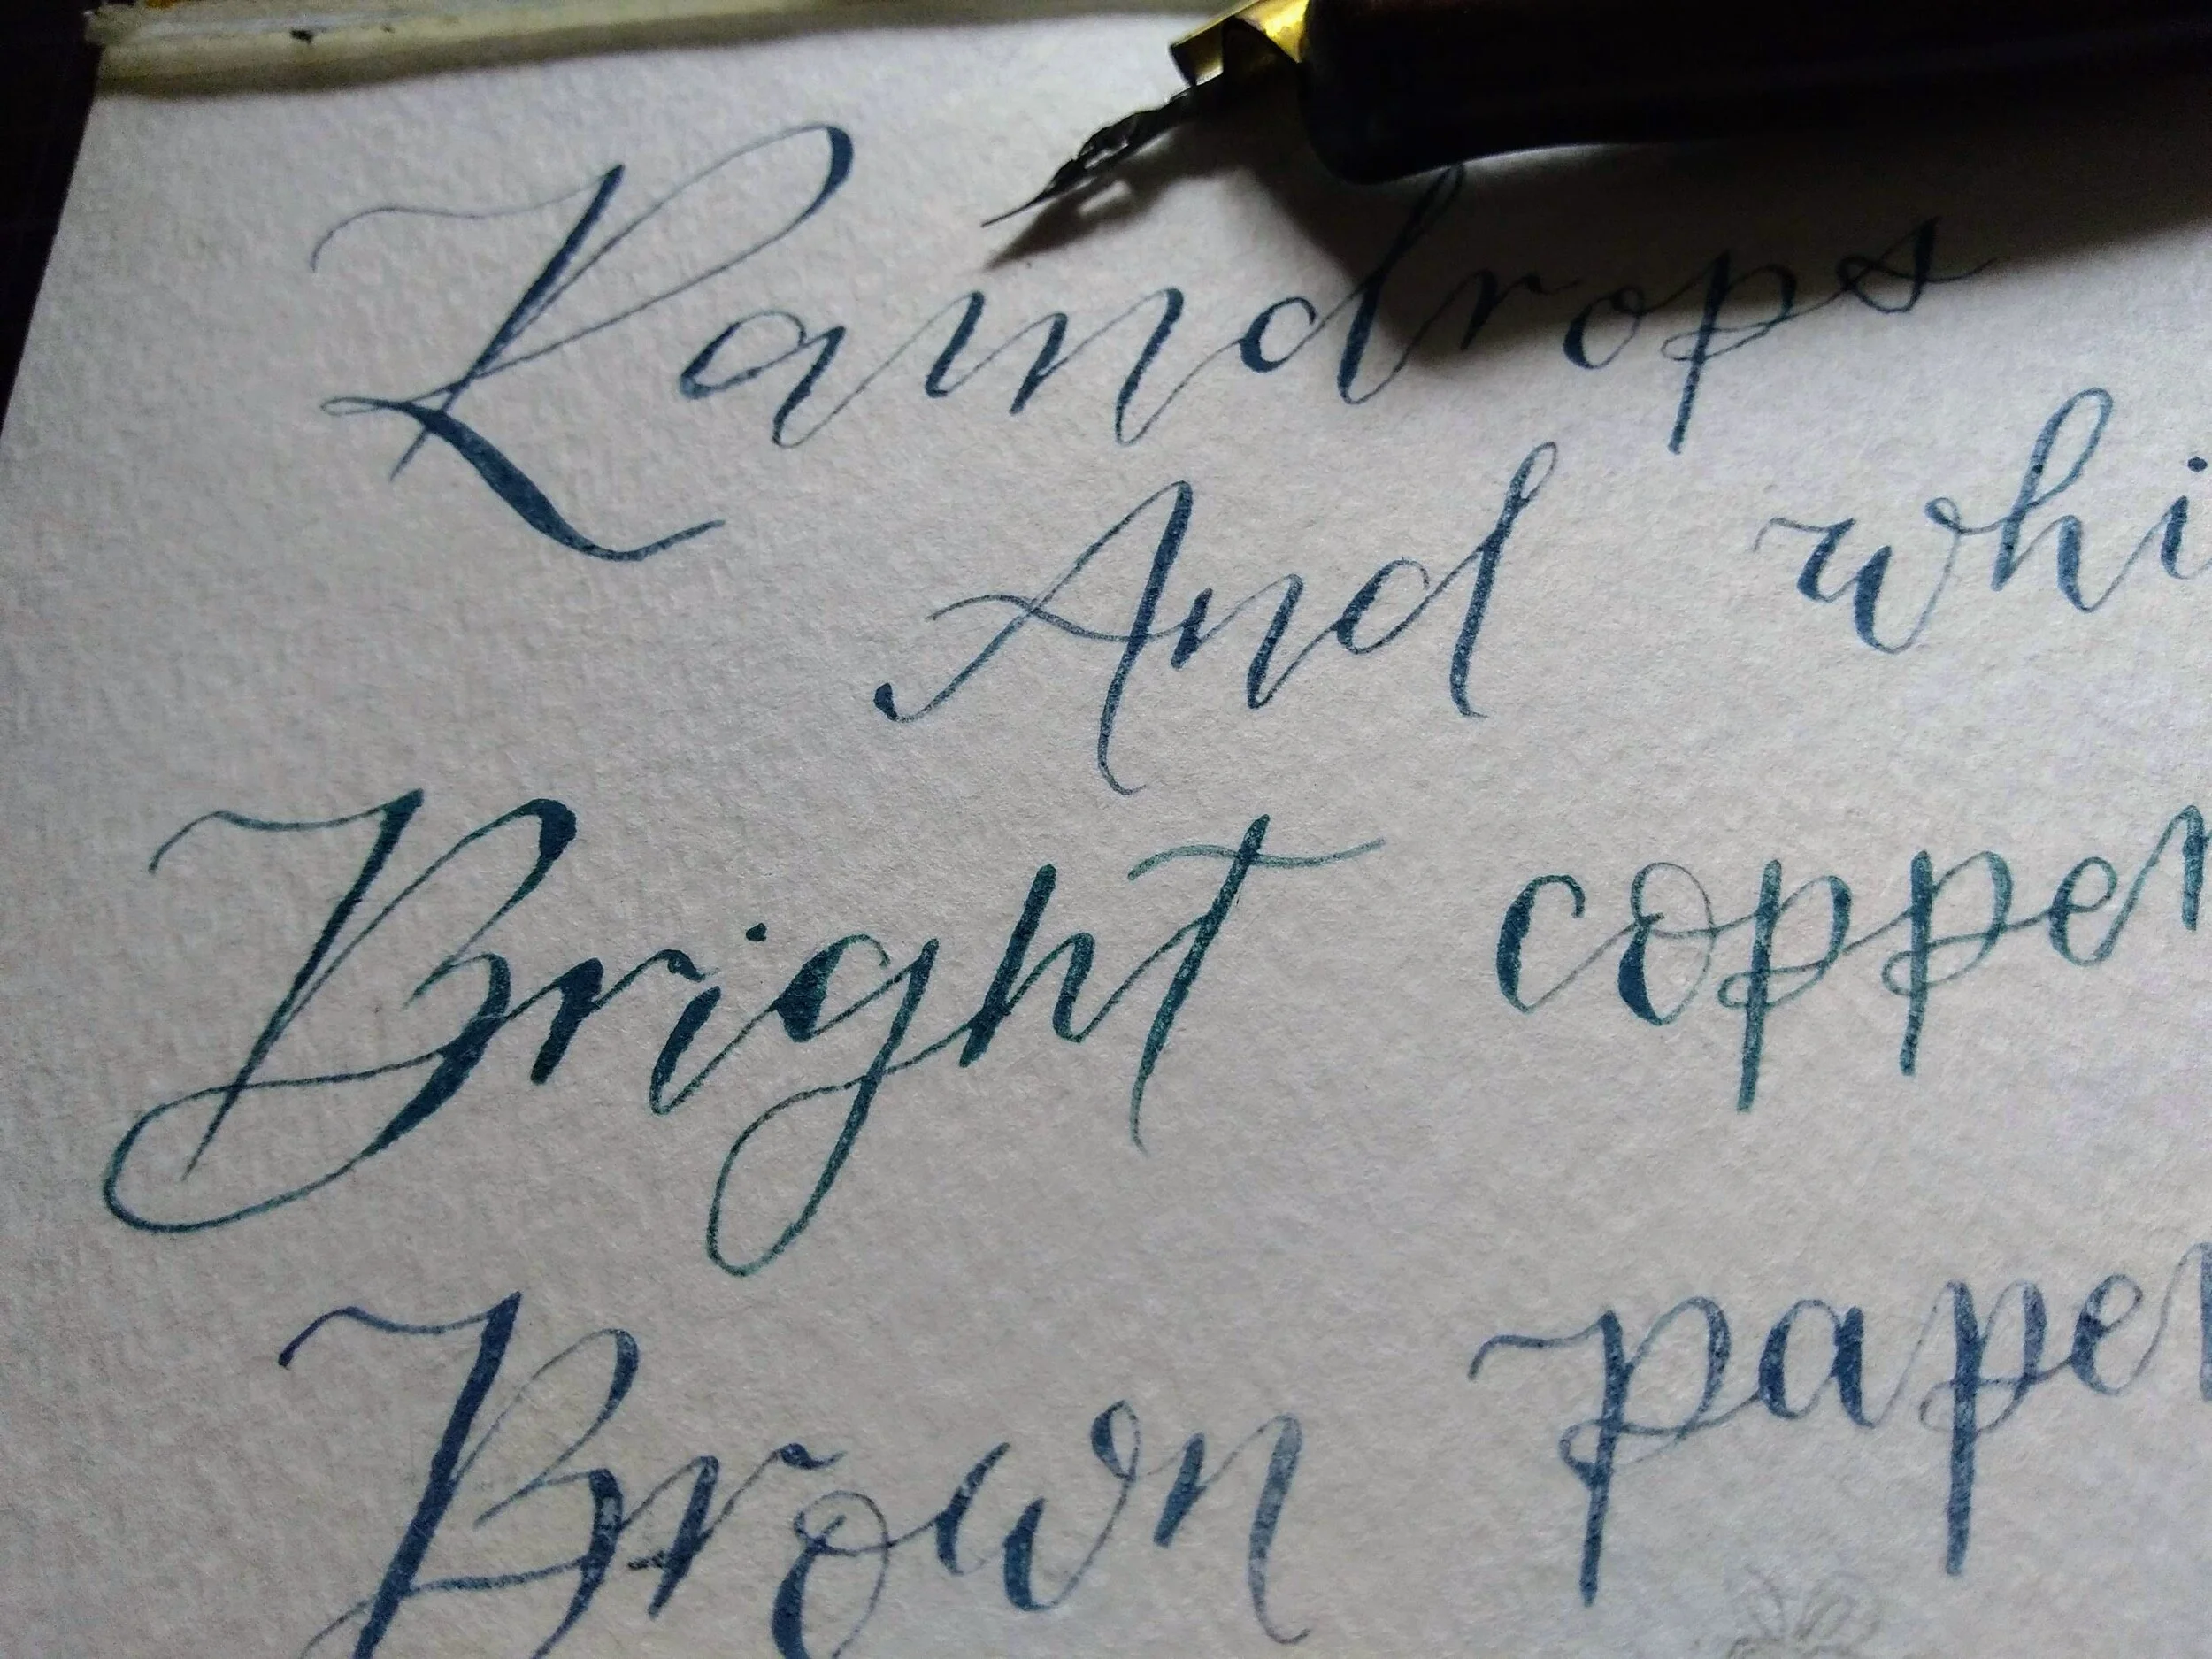 Raindrops
And whi
Bright copper
Brown paper